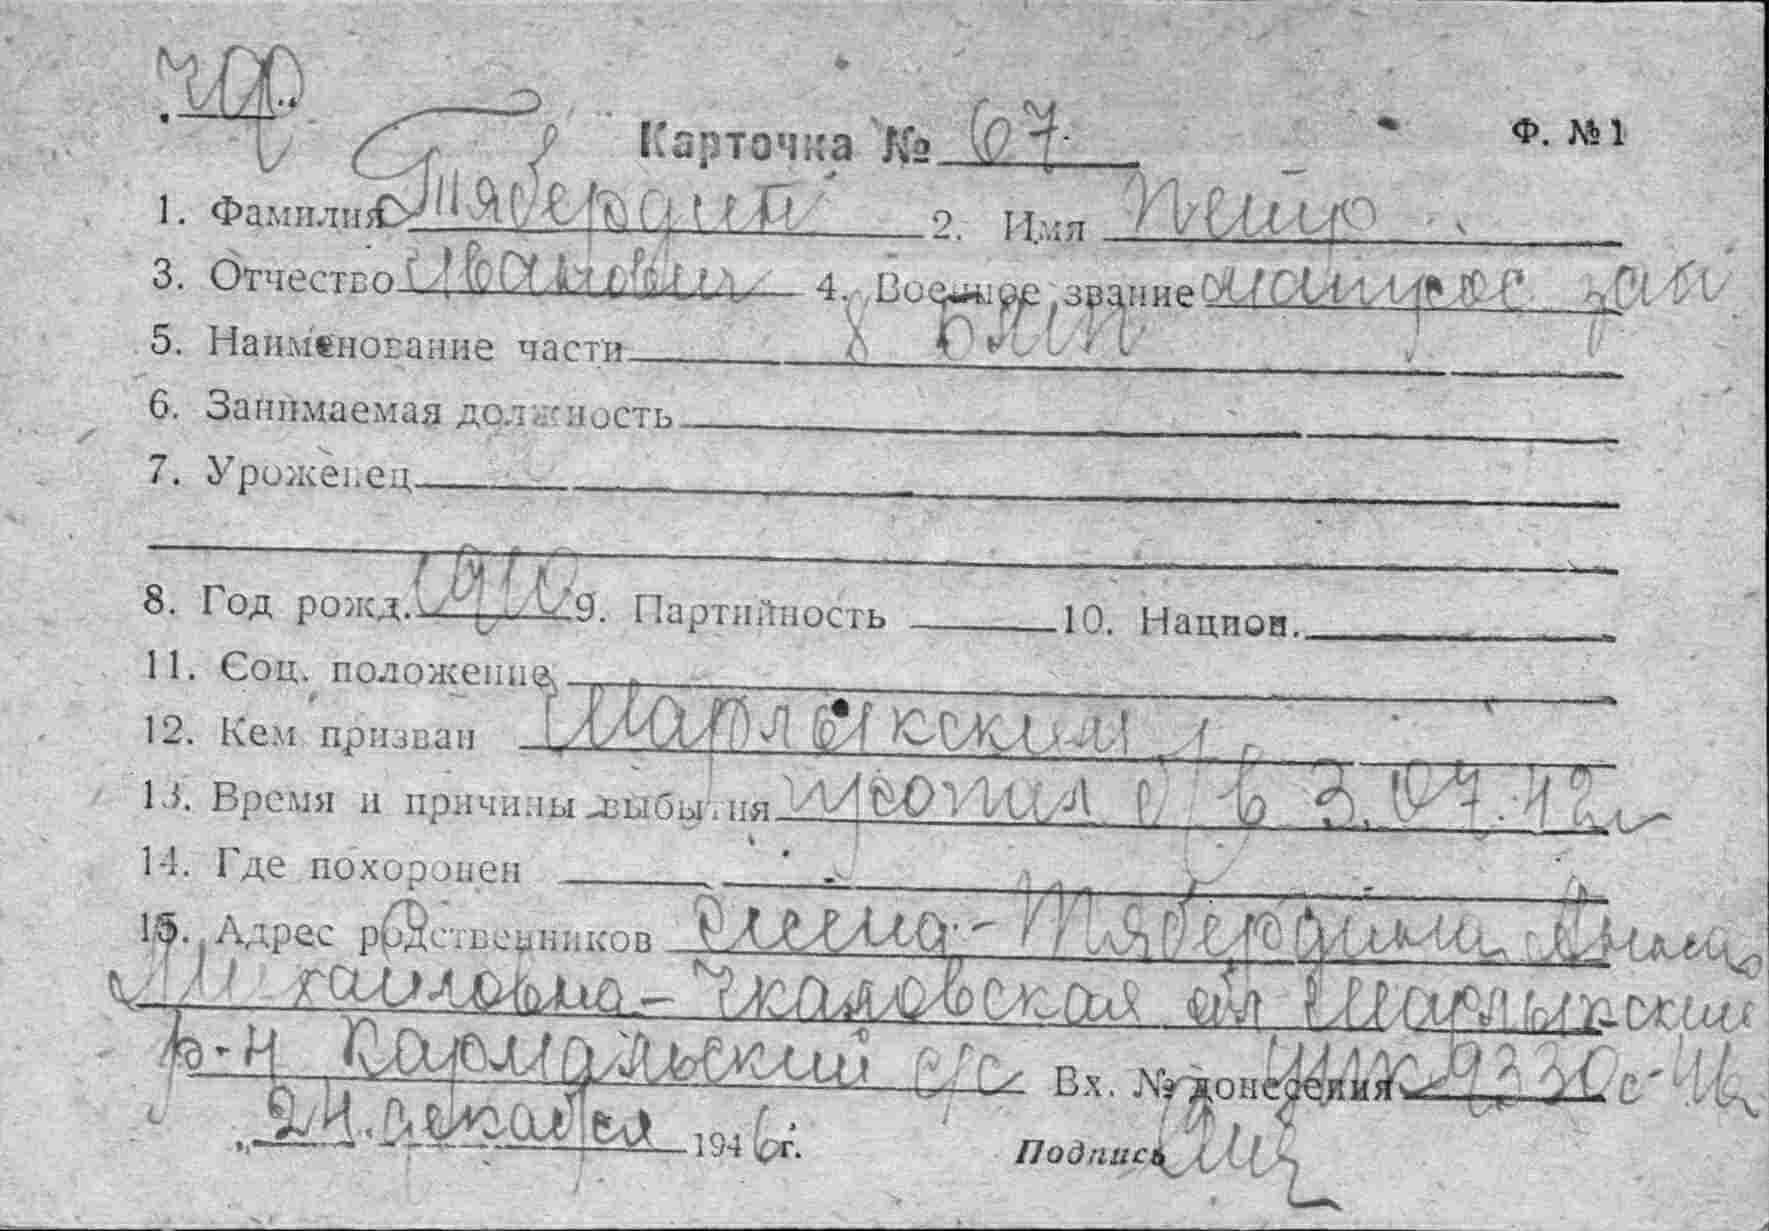 ЧФ
Карточка № 67 Ф. №1
1. Фамилия Тябердин 2. Имя Петр
3. Отчество Иванович 4. Военное звание матрос зап
5. Наименование части 8 БМП
6. Занимаемая должность
7. Уроженец
8. Год рожд. 1910 9. Партийность 10. Национ.
11. Соц. положение
12. Кем призван Шарлыкским
13. Время и причины выбытия пропал б/в 3.07.42г
14. Где похоронен
15. Адрес родственников жена - Тябердина Анна
Михайловна - Чкаловская обл Шарлыкский
р-н Кармальский с/с Вх. № донесения 9330с-46
24 декабря 1946 г. Подпись